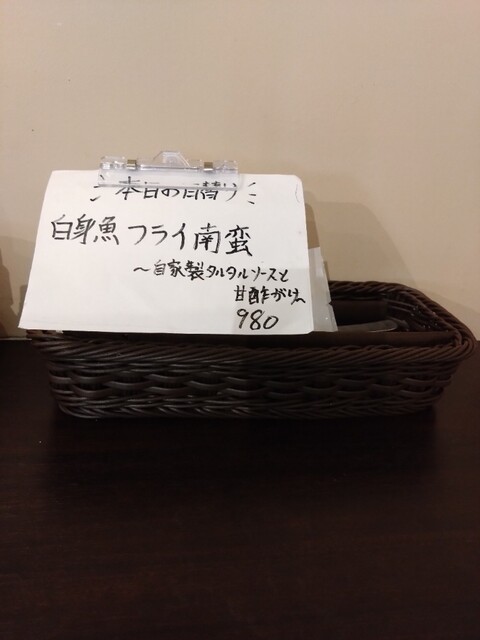 本日の日替り
白身魚フライ南蛮
～自家製タルタルソースと
甘酢がけ～
980